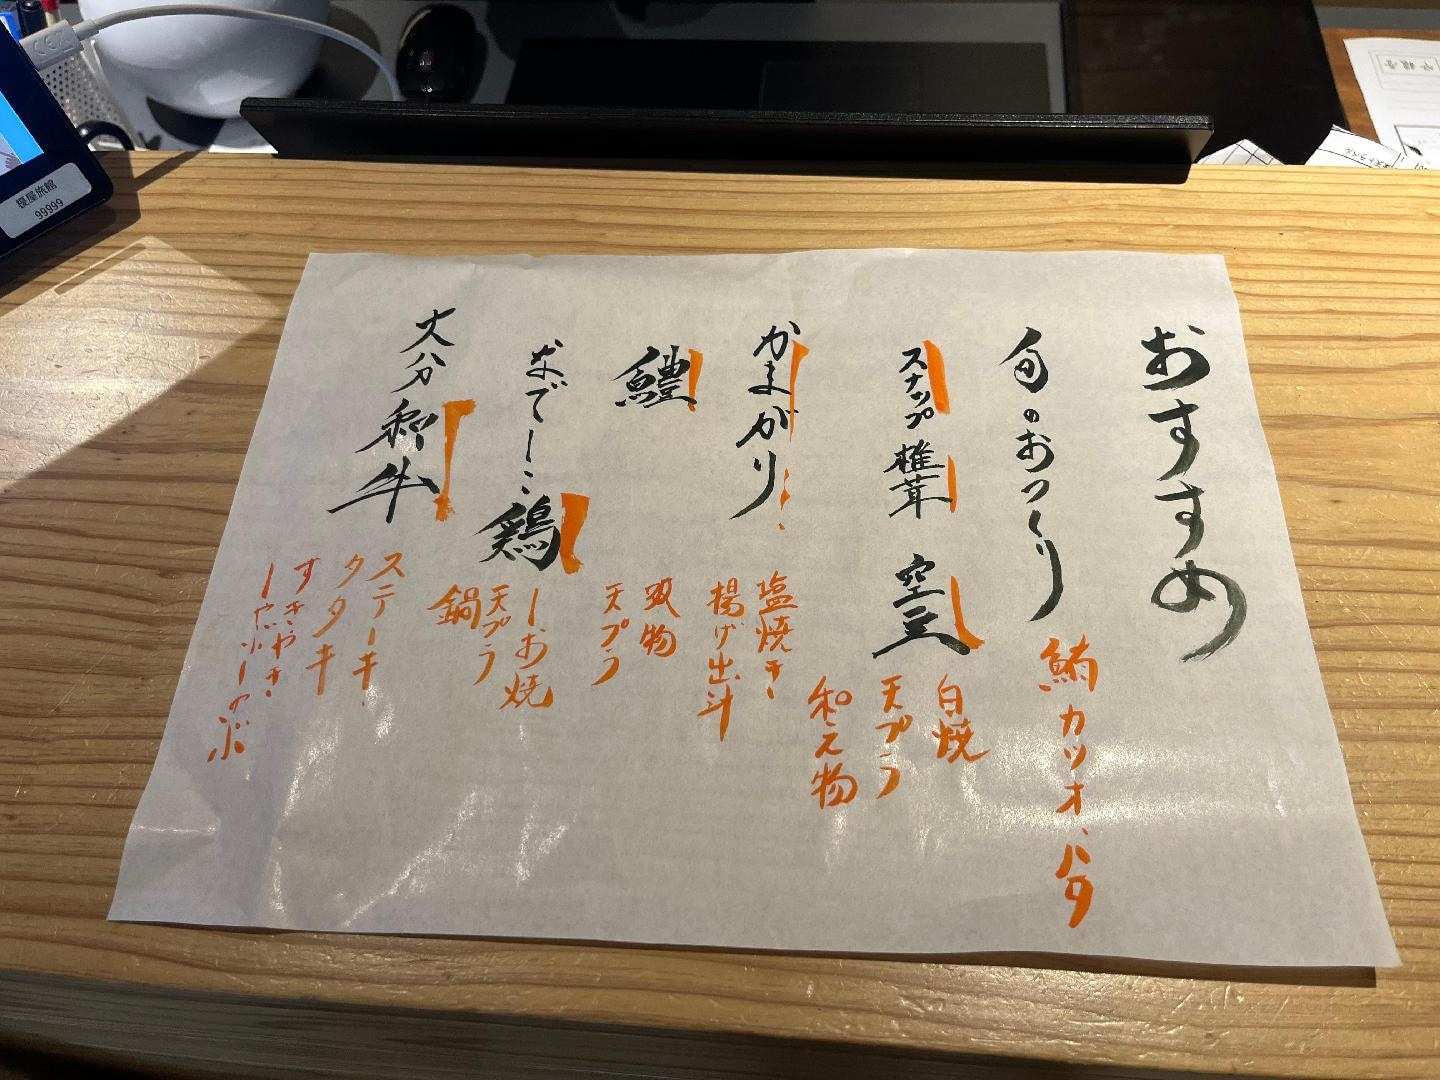 おすすめ
旬のおつくり
鮪 カツオ、ハタ
スナップ 椎茸 空豆
白焼
天プラ
和え物
かますがり
塩焼き
揚げ出汁
鱧
吸物
天プラ
なでしこ鶏
しお焼
天プラ
鍋
大分和牛
ステーキ
タタキ
すきやき
しゃぶしゃぶ
榎屋旅館
99999